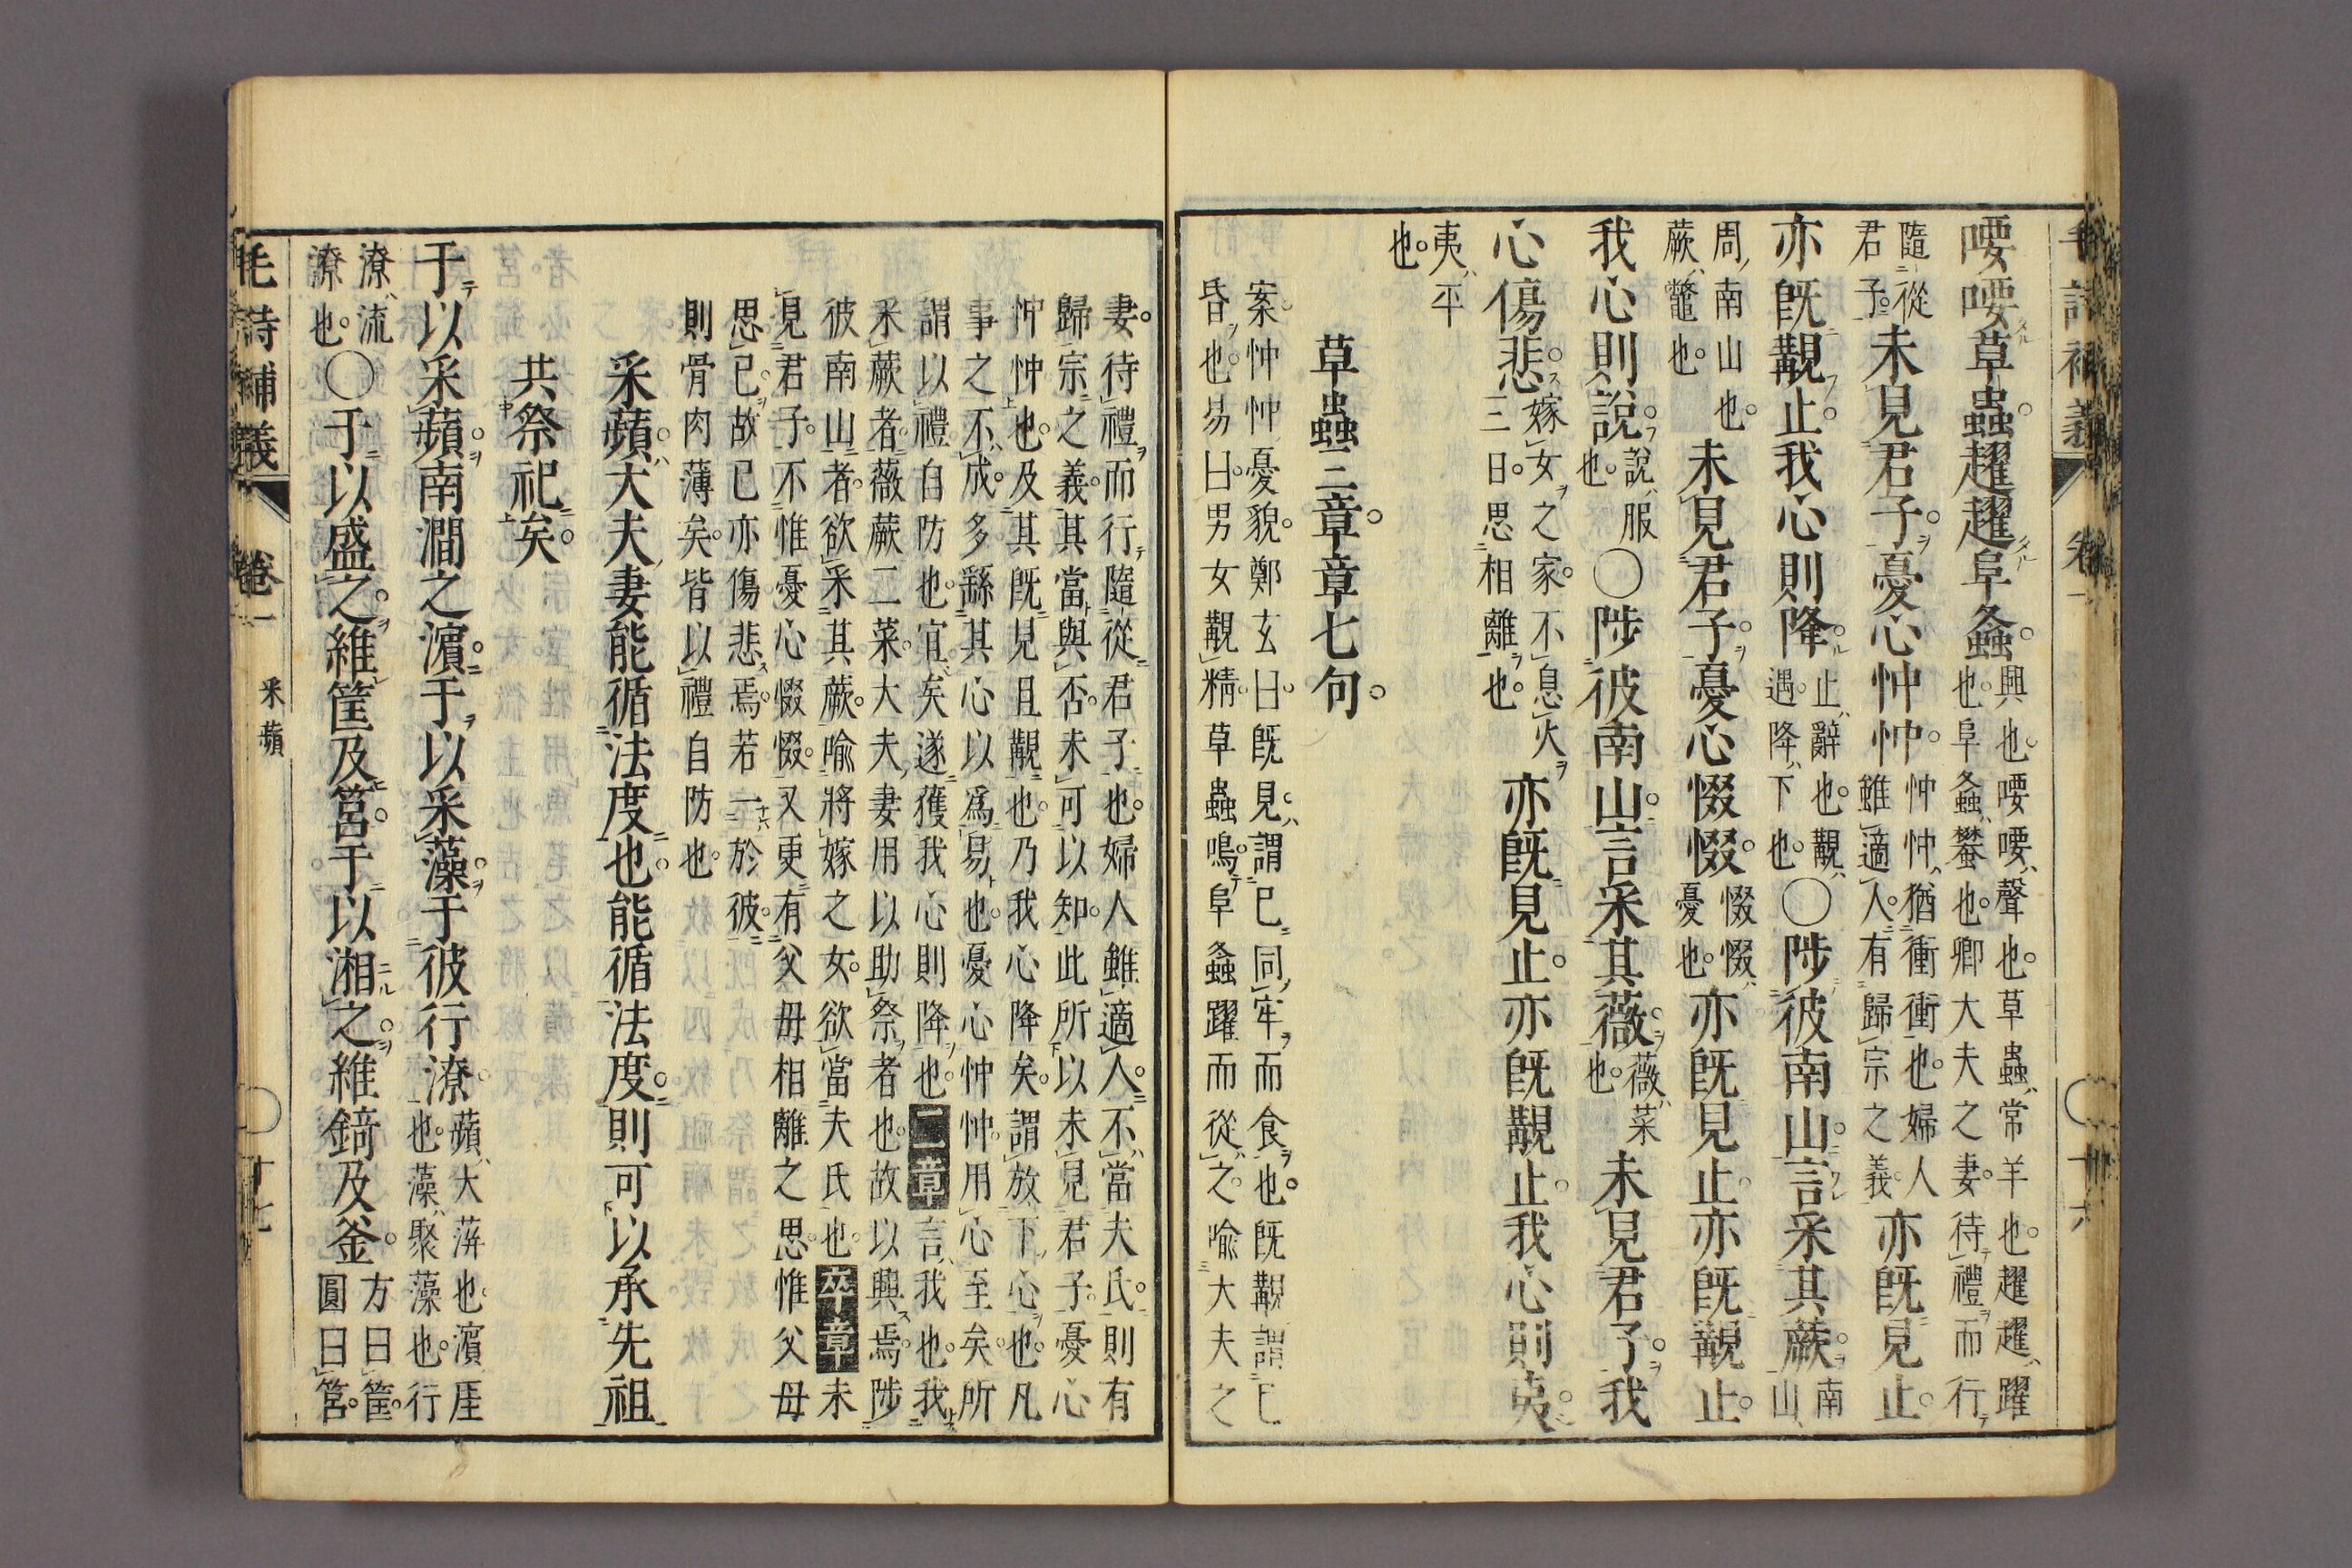 喓喓草蟲趯趯阜螽興也喓喓聲也草蟲常羊也趯趯躍
也阜螽蠜也卿大夫之妻待禮而行
隨從
君子未見君子憂心忡忡忡忡猶衝衝也婦人
雖適人有歸宗之義亦既見止
亦既覯止我心則降止辭也覯
遇降下也〇陟彼南山言采其蕨南
山
周南山也
蕨鼈也未見君子憂心惙惙惙惙
憂也亦既見止亦既覯止
我心則說說服
也〇陟彼南山言采其薇薇菜
也未見君子我
心傷悲嫁女之家不息火
三日思相離也亦既見止亦既覯止我心則夷
夷平
也
草蟲三章章七句
案忡忡憂貌鄭玄曰既見謂已同牢而食也既覯謂已
昏也易曰男女覯精草蟲鳴阜螽躍而從之喻大夫之
毛詩補義 卷一 十六
妻待禮而行隨從君子也婦人雖適人不當夫氏則有
歸宗之義其當與否未可以知此所以未見君子憂心
忡忡也及其既見且覯也乃我心降矣謂放下心也凡
事之不成多繇其心以爲易也憂心忡忡用心至矣所
謂以禮自防也宜矣遂獲我心則降也二章言我也我
采蕨者薇蕨二菜大夫妻用以助祭者也故以興焉陟
彼南山者欲采其蕨喻將嫁之女欲當夫氏也卒章未
見君子不惟憂心惙惙又更有父母相離之思惟父母
思已故已亦傷悲焉若一於彼
則骨肉薄矣皆以禮自防也
采蘋大夫妻能循法度也能循法度則可以承先祖
共祭祀矣
于以采蘋南澗之濱于以采藻于彼行潦蘋大蓱也濱厓
也藻聚藻也行
潦流
潦也〇于以盛之維筐及筥于以湘之維錡及釜方曰筐
圓曰筥
毛詩補義 卷一 采蘋 十七